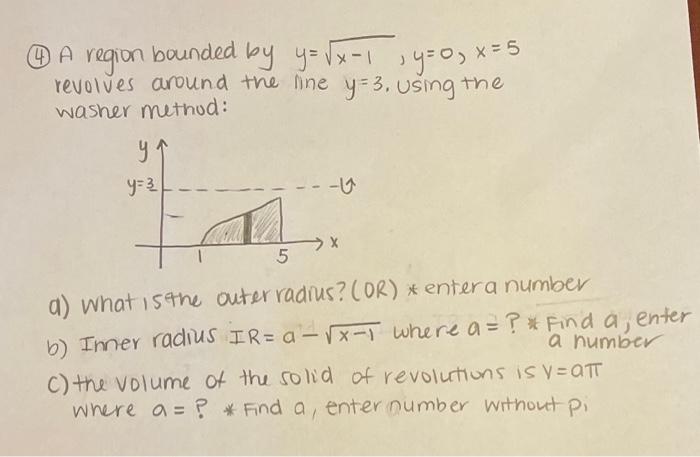 ④ A region bounded by y=√x-1 , y=0, x=5
revolves around the line y=3. Using the
washer method:
y
y=3
x
1 5
a) what is the outer radius? (OR) * enter a number
b) Inner radius IR= a-√x-1 where a=? * Find a, enter
a number
c) the volume of the solid of revolutions is V=aπ
where a=? * Find a, enter number without pi